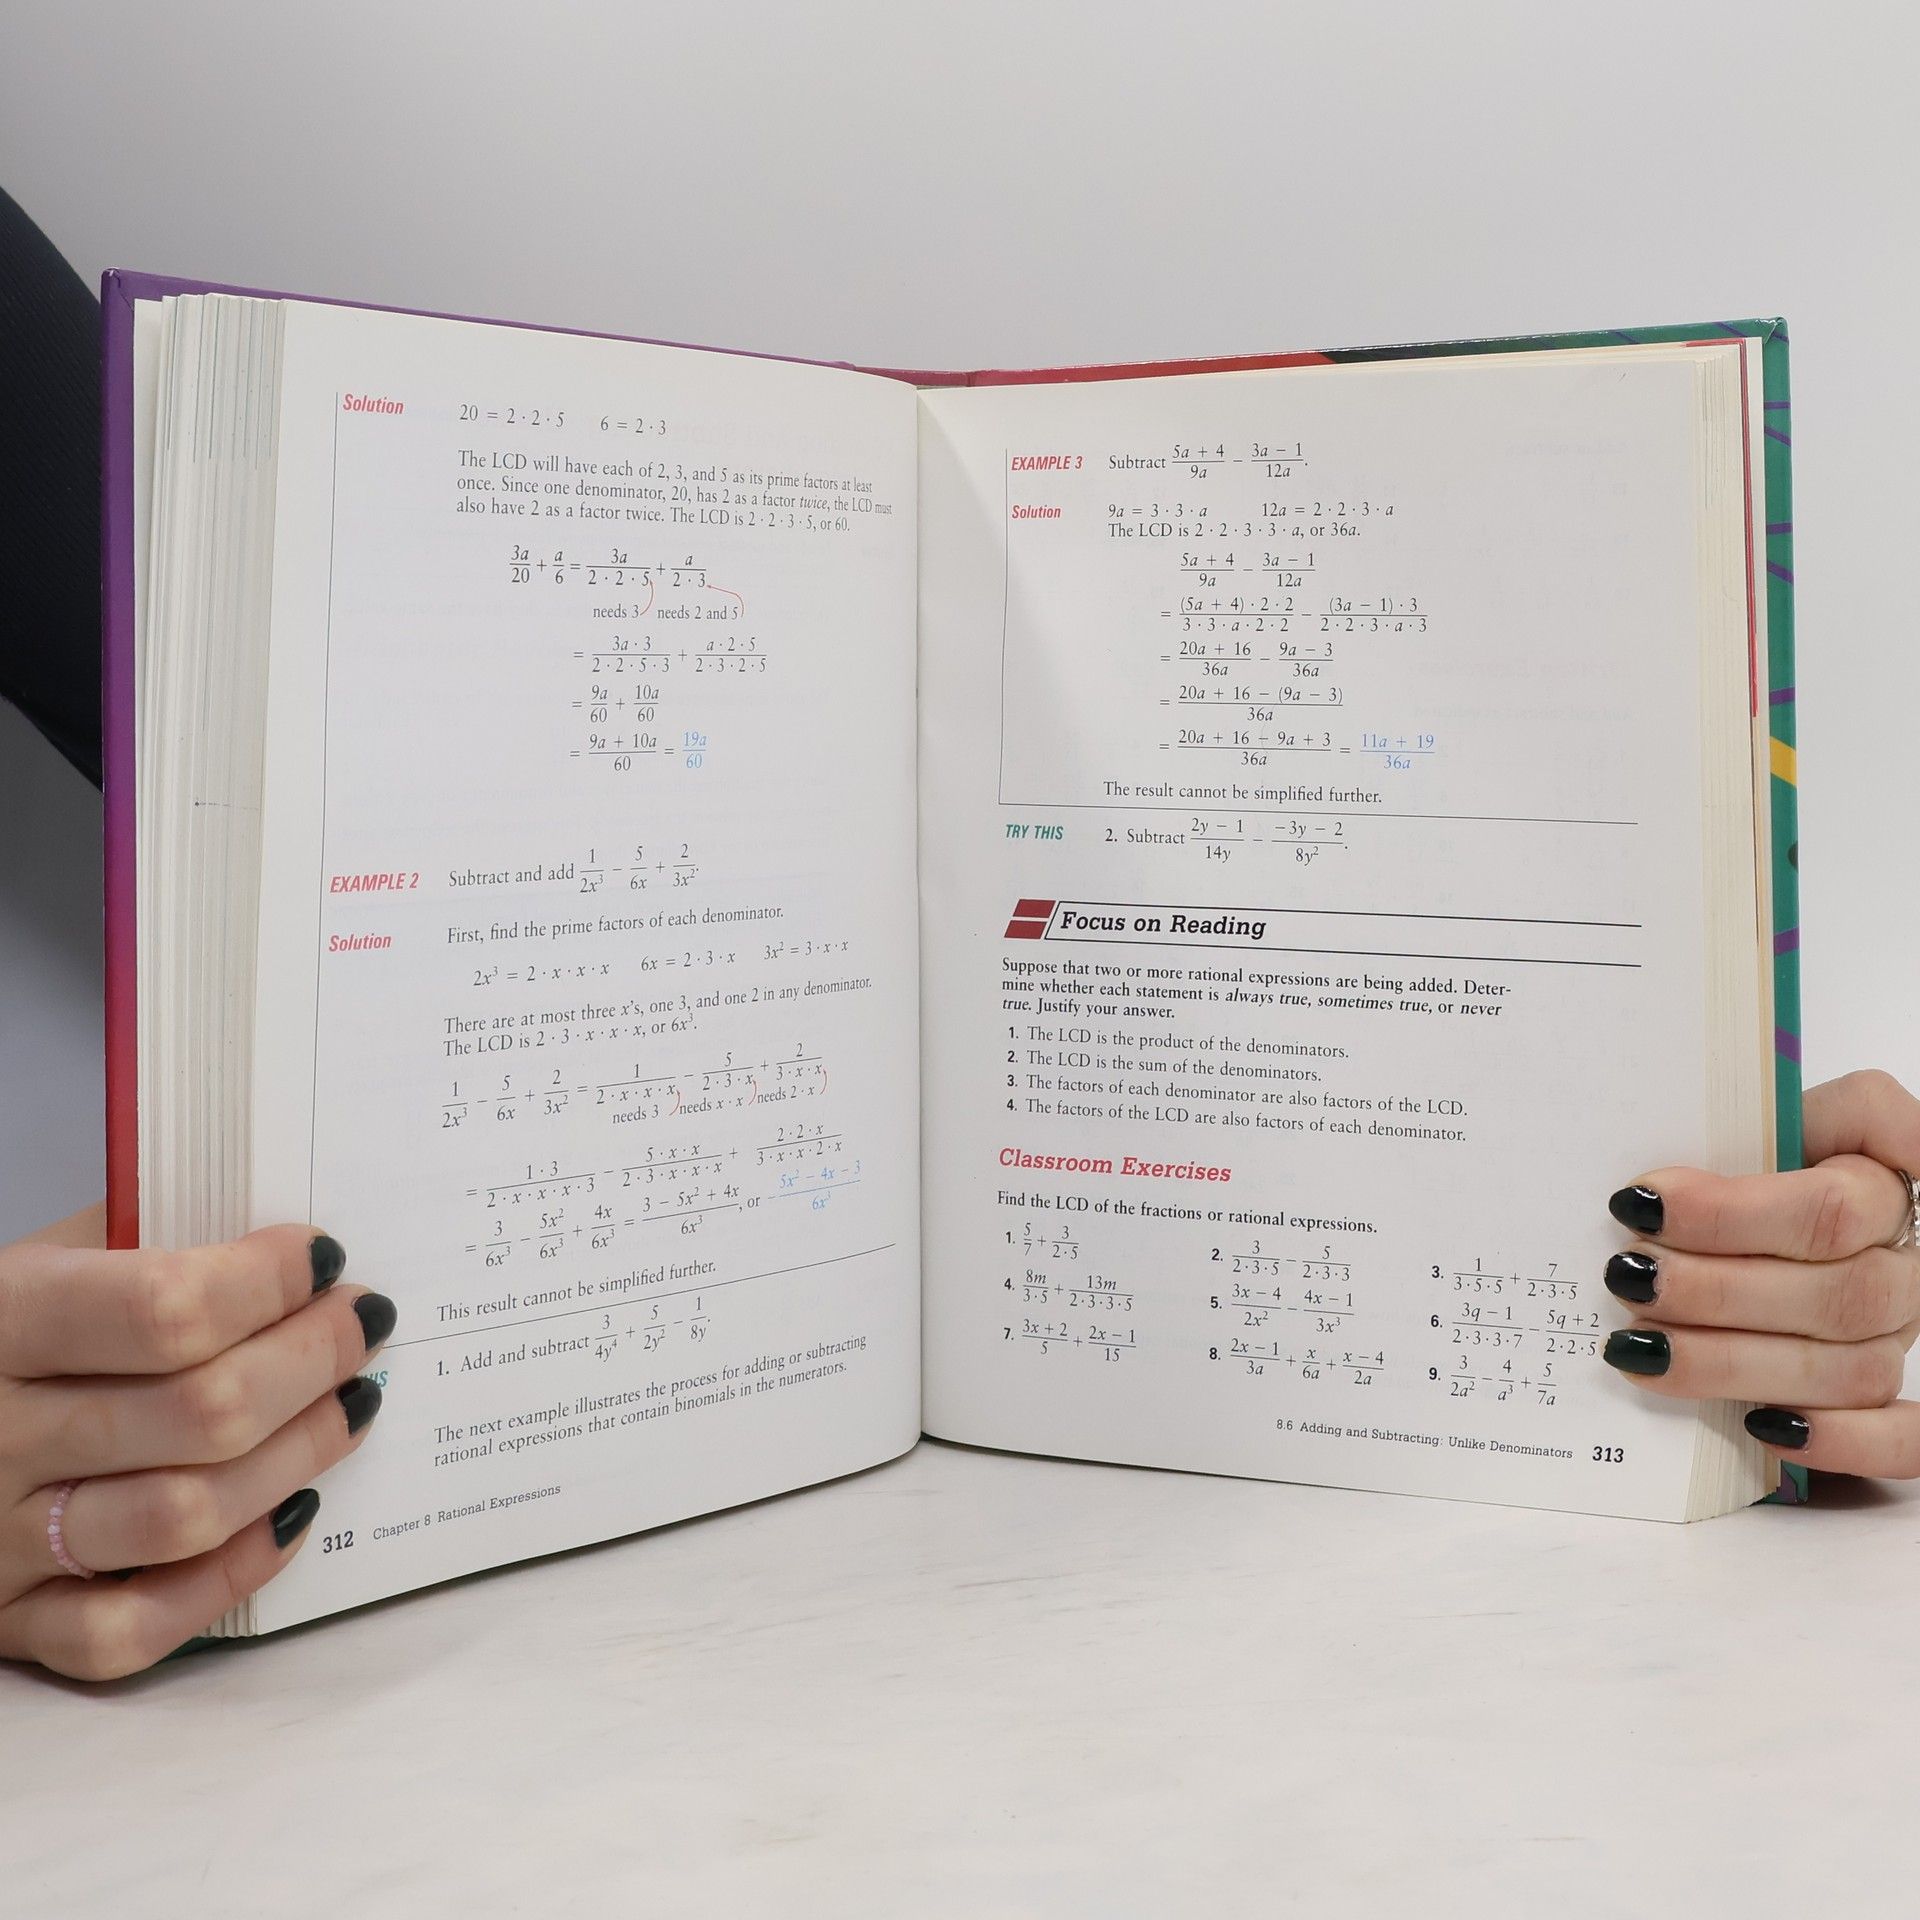 Solution
20 = 2 · 2 · 5   6 = 2 · 3
The LCD will have each of 2, 3, and 5 as its prime factors at least
once. Since one denominator, 20, has 2 as a factor twice, the LCD must
also have 2 as a factor twice. The LCD is 2 · 2 · 3 · 5, or 60.
3a/20 + a/6 = 3a/(2 · 2 · 5) + a/(2 · 3)
needs 3   needs 2 and 5
= (3a · 3)/(2 · 2 · 5 · 3) + (a · 2 · 5)/(2 · 3 · 2 · 5)
= 9a/60 + 10a/60
= (9a + 10a)/60 = 19a/60
EXAMPLE 2   Subtract and add 1/2x³ − 5/6x + 2/3x².
Solution   First, find the prime factors of each denominator.
2x³ = 2 · x · x · x   6x = 2 · 3 · x   3x² = 3 · x · x
There are at most three x's, one 3, and one 2 in any denominator.
The LCD is 2 · 3 · x · x · x, or 6x³.
1/2x³ − 5/6x + 2/3x² = 1/(2 · x · x · x) − 5/(2 · 3 · x) + 2/(3 · x · x)
needs 3   needs x · x   needs 2 · x
= (1 · 3)/(2 · x · x · x · 3) − (5 · x · x)/(2 · 3 · x · x · x) + (2 · 2 · x)/(3 · x · x · 2 · x)
= 3/6x³ − 5x²/6x³ + 4x/6x³ = (3 − 5x² + 4x)/6x³, or −(5x² − 4x − 3)/6x³
This result cannot be simplified further.
1. Add and subtract 3/4y⁴ + 5/2y² − 1/8y.
The next example illustrates the process for adding or subtracting
rational expressions that contain binomials in the numerators.
312   Chapter 8 Rational Expressions
EXAMPLE 3   Subtract (5a + 4)/9a − (3a − 1)/12a.
Solution   9a = 3 · 3 · a   12a = 2 · 2 · 3 · a
The LCD is 2 · 2 · 3 · 3 · a, or 36a.
(5a + 4)/9a − (3a − 1)/12a
= ((5a + 4) · 2 · 2)/(3 · 3 · a · 2 · 2) − ((3a − 1) · 3)/(2 · 2 · 3 · a · 3)
= (20a + 16)/36a − (9a − 3)/36a
= (20a + 16 − (9a − 3))/36a
= (20a + 16 − 9a + 3)/36a = (11a + 19)/36a
The result cannot be simplified further.
TRY THIS   2. Subtract (2y − 1)/14y − (−3y − 2)/8y².
Focus on Reading
Suppose that two or more rational expressions are being added. Deter-
mine whether each statement is always true, sometimes true, or never
true. Justify your answer.
1. The LCD is the product of the denominators.
2. The LCD is the sum of the denominators.
3. The factors of each denominator are also factors of the LCD.
4. The factors of the LCD are also factors of each denominator.
Classroom Exercises
Find the LCD of the fractions or rational expressions.
1. 5/7 + 3/(2·5)   2. 3/(2·3·5) − 5/(2·3·3)   3. 1/(3·5·5) + 7/(2·3·5)
4. 8m/(3·5) + 13m/(2·3·3·5)   5. (3x − 4)/2x² − (4x − 1)/3x³   6. (3q − 1)/(2·3·3·7) − (5q + 2)/(2·2·5
7. (3x + 2)/5 + (2x − 1)/15   8. (2x − 1)/3a + x/6a + (x − 4)/2a   9. 3/2a² − 4/a³ + 5/7a
8.6 Adding and Subtracting: Unlike Denominators   313